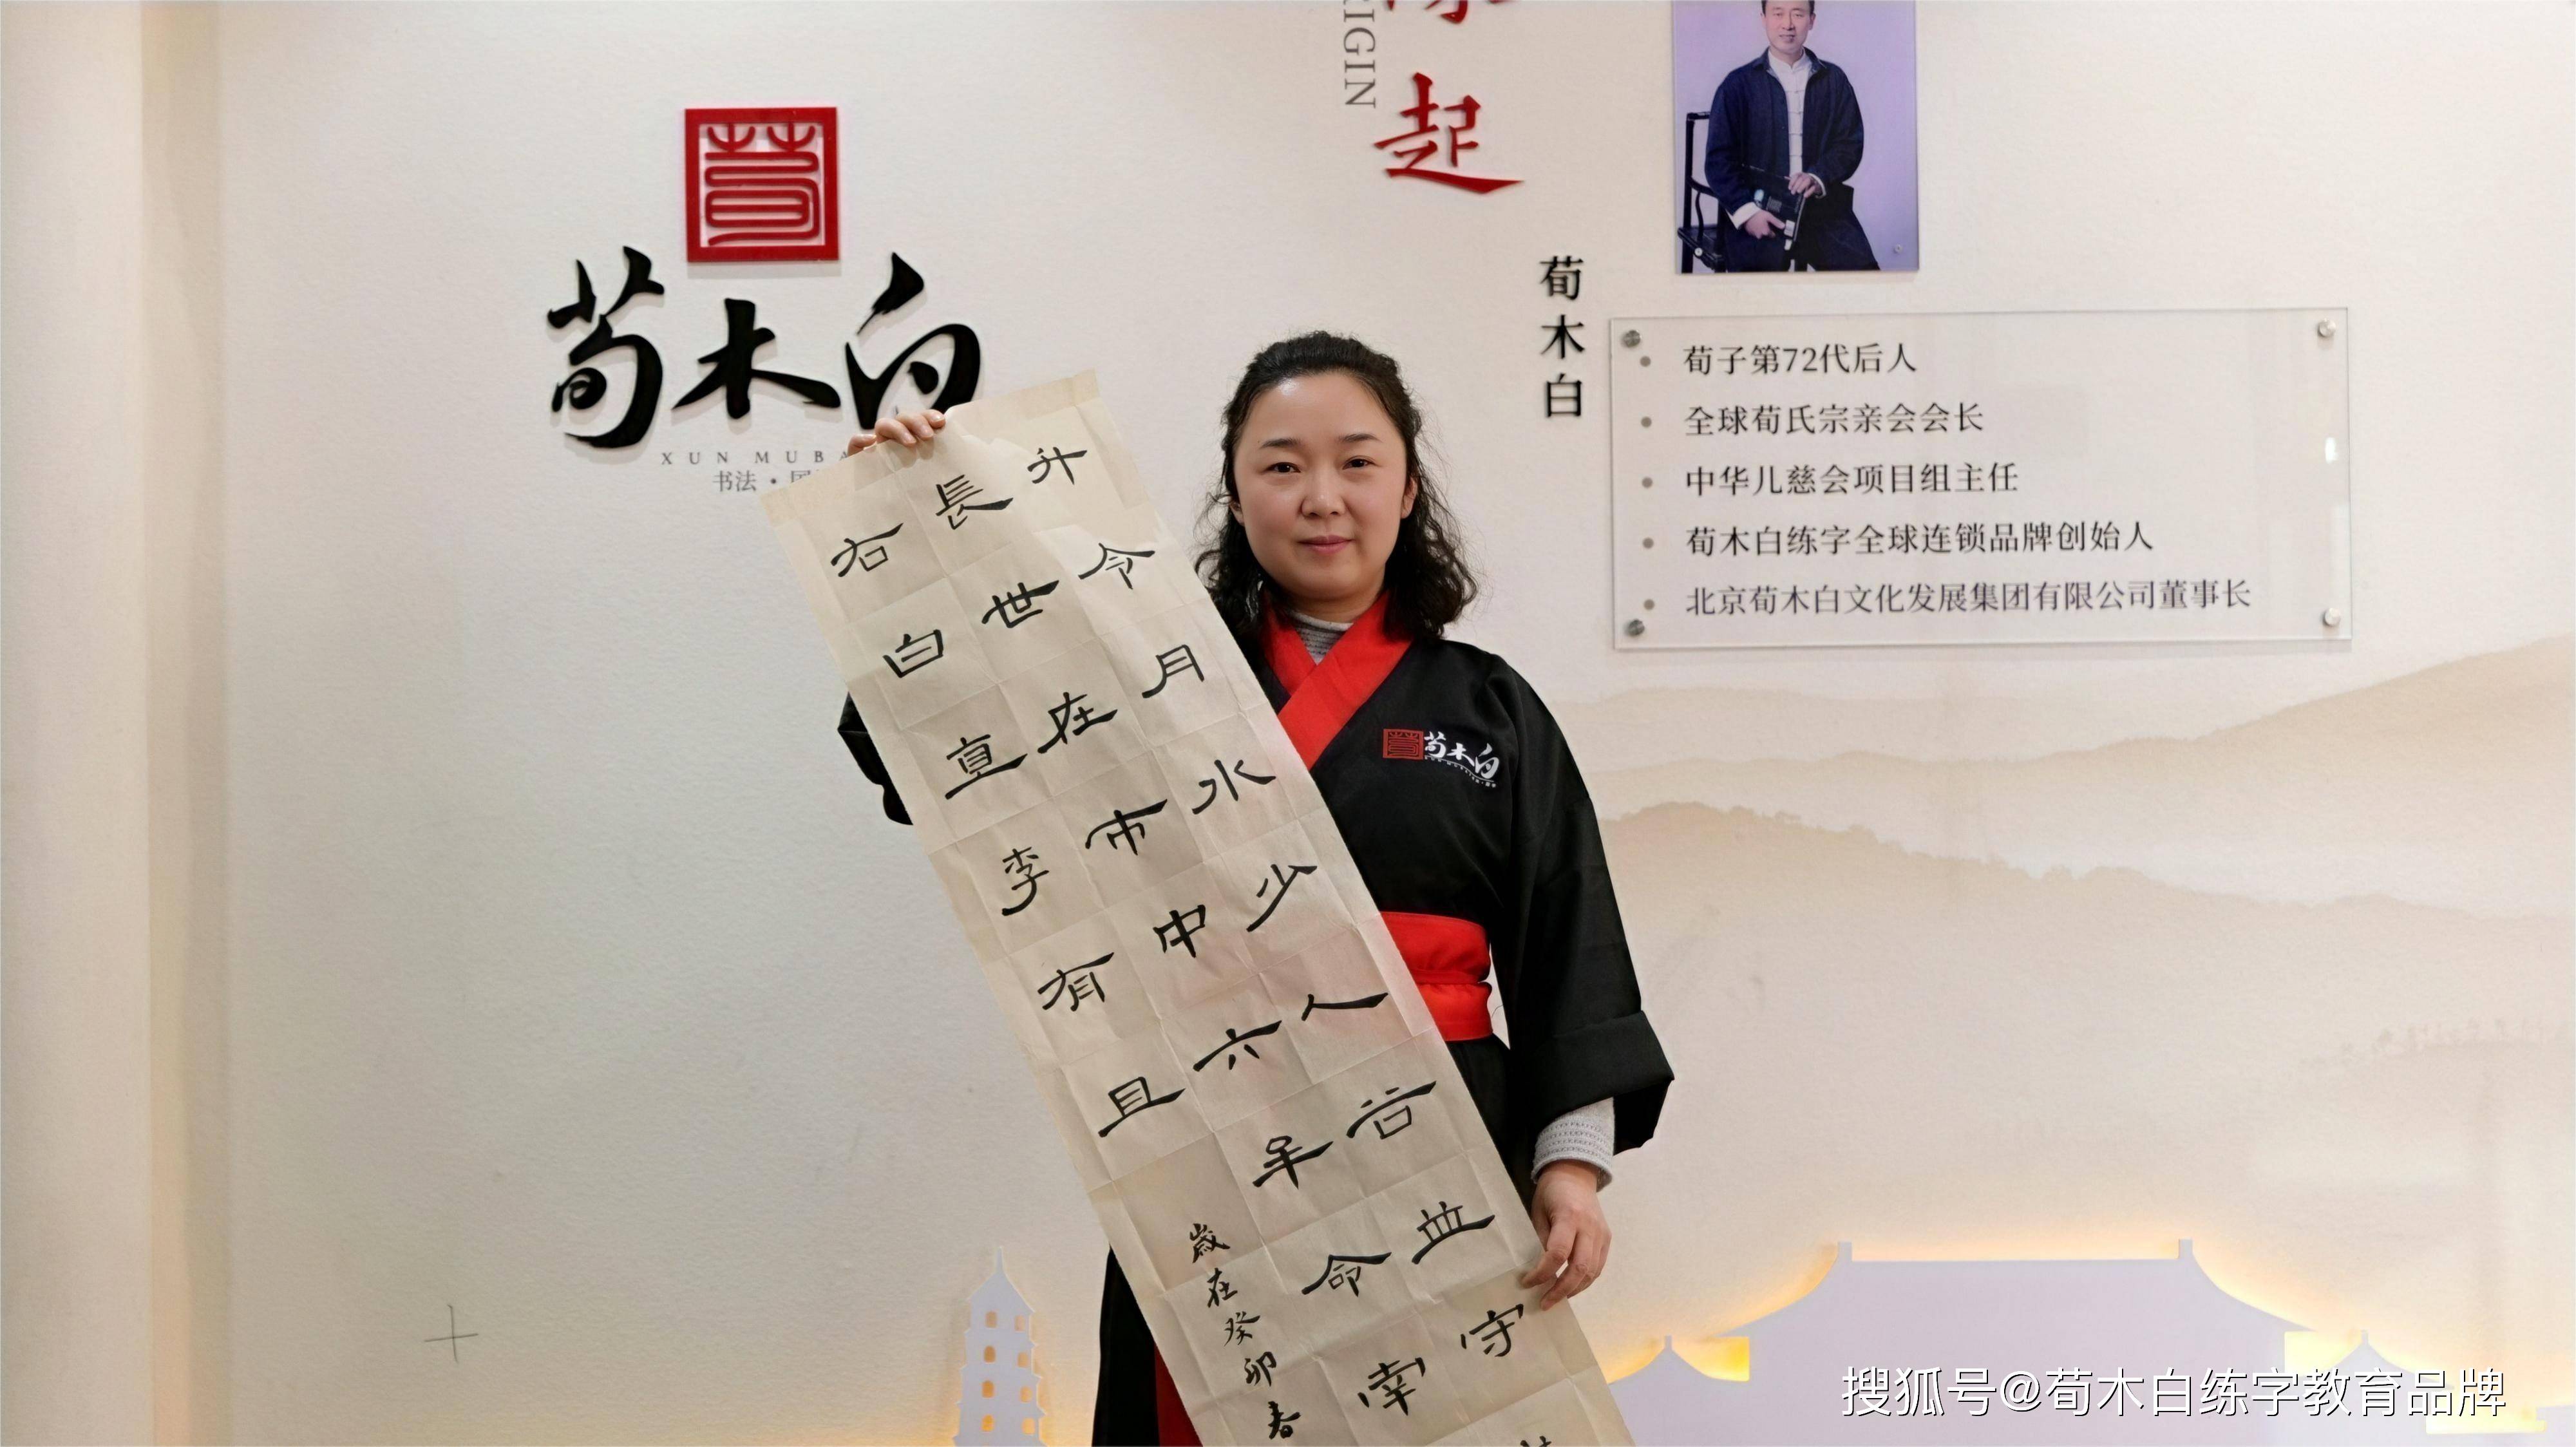 荀
荀木白
XUN MUBA
书法·国
RIGIN
起
荀木白
荀子第72代后人
全球荀氏宗亲会会长
中华儿慈会项目组主任
荀木白练字全球连锁品牌创始人
北京荀木白文化发展集团有限公司董事长
荀木白
升令月水少人
守
長世在市中六
命
右白直李有且
歲在癸卯春
搜狐号@荀木白练字教育品牌